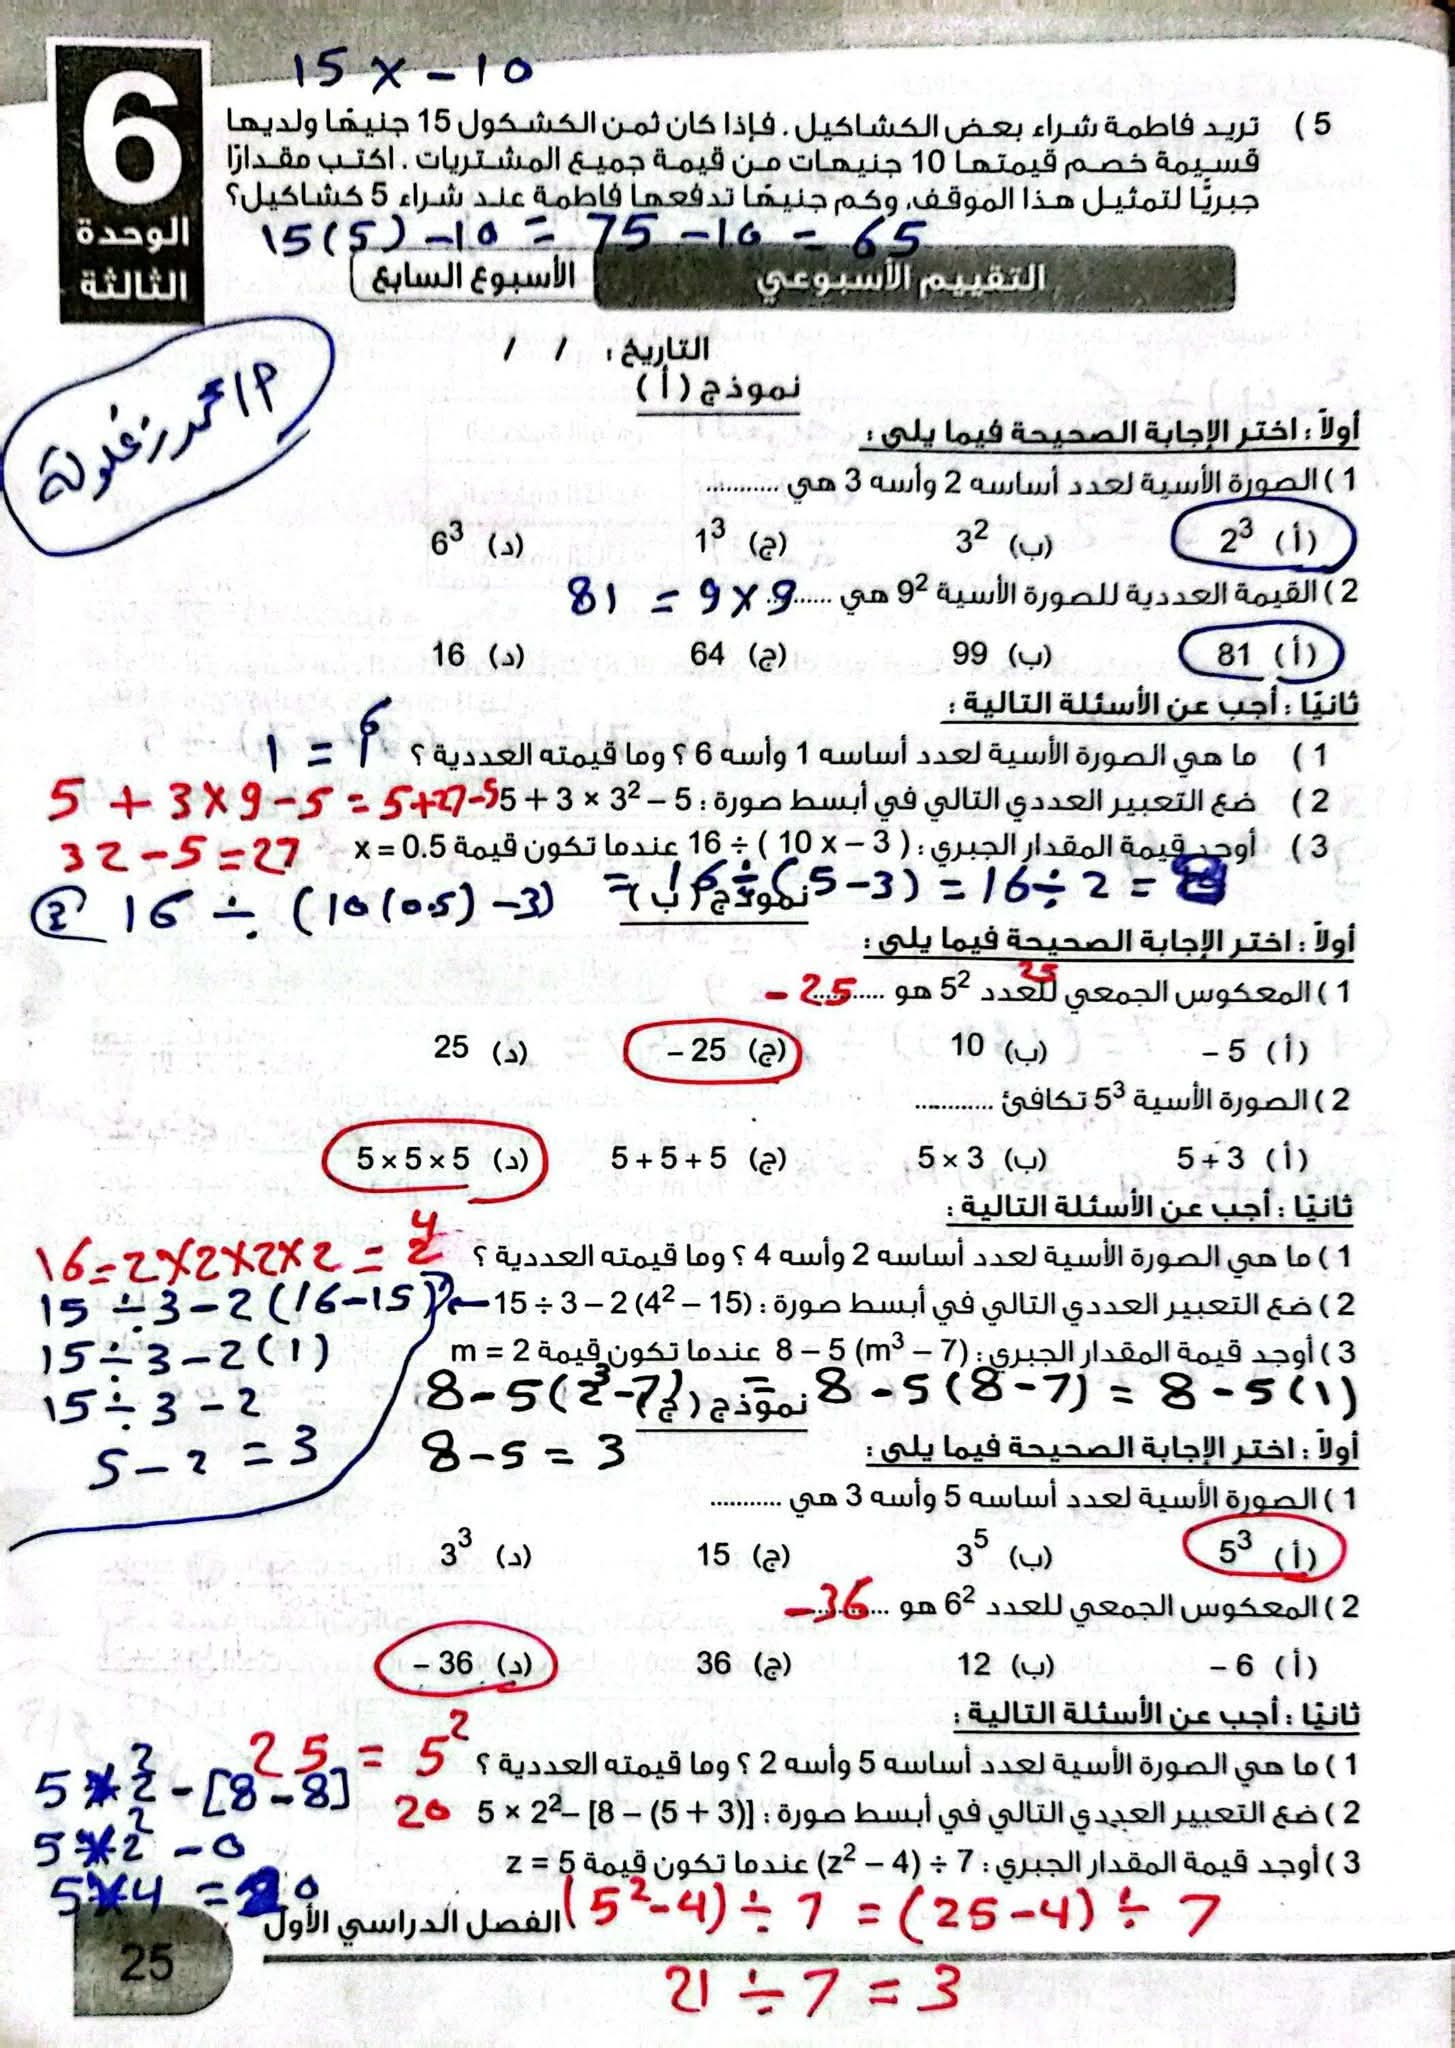 15 x - 10
6
الوحدة
الثالثة
5 ) تريد فاطمة شراء بعض الكشاكيل . فإذا كان ثمن الكشكول 15 جنيهًا ولديها
قسيمة خصم قيمتها 10 جنيهات من قيمة جميع المشتريات . اكتب مقدارًا
جبريًّا لتمثيل هذا الموقف، وكم جنيهًا تدفعها فاطمة عند شراء 5 كشاكيل؟
15(5) - 10 = 75 - 10 = 65
التقييم الأسبوعي الأسبوع السابع
التاريخ : / /
نموذج ( أ )
أولاً : اختر الإجابة الصحيحة فيما يلي :
1 ) الصورة الأسية لعدد أساسه 2 وأسه 3 هي ...........
(أ) 2³ (ب) 3² (ج) 1³ (د) 6³
2 ) القيمة العددية للصورة الأسية 9² هي ..........
81 = 9 x 9
(أ) 81 (ب) 99 (ج) 64 (د) 16
ثانيًا : أجب عن الأسئلة التالية :
1 ) ما هي الصورة الأسية لعدد أساسه 1 وأسه 6 ؟ وما قيمته العددية ؟
1 = 1⁶
2 ) ضع التعبير العددي التالي في أبسط صورة : 5 + 3 × 3² – 5
5 + 3 x 9 - 5 = 5 + 27 - 5
32 - 5 = 27
3 ) أوجد قيمة المقدار الجبري : 16 ÷ ( 10 x – 3 ) عندما تكون قيمة x = 0.5
3 16 ÷ (10(0.5) - 3) = 16 ÷ (5 - 3) = 16 ÷ 2 = 8
نموذج ( ب )
أولاً : اختر الإجابة الصحيحة فيما يلي :
1 ) المعكوس الجمعي للعدد 5² هو ...........
25
- 25
(أ) – 5 (ب) 10 (ج) – 25 (د) 25
2 ) الصورة الأسية 5³ تكافئ ............
(أ) 5 + 3 (ب) 5 × 3 (ج) 5 + 5 + 5 (د) 5 × 5 × 5
ثانيًا : أجب عن الأسئلة التالية :
1 ) ما هي الصورة الأسية لعدد أساسه 2 وأسه 4 ؟ وما قيمته العددية ؟
16 = 2 x 2 x 2 x 2 = 2⁴
2 ) ضع التعبير العددي التالي في أبسط صورة : 15 ÷ 3 – 2 (4² – 15)
15 ÷ 3 - 2 (16 - 15)
15 ÷ 3 - 2 (1)
15 ÷ 3 - 2
5 - 2 = 3
3 ) أوجد قيمة المقدار الجبري : 8 – 5 (m³ – 7) عندما تكون قيمة m = 2
8 - 5 (2³ - 7) = 8 - 5 (8 - 7) = 8 - 5 (1)
8 - 5 = 3
نموذج ( ج )
أولاً : اختر الإجابة الصحيحة فيما يلي :
1 ) الصورة الأسية لعدد أساسه 5 وأسه 3 هي ...........
(أ) 5³ (ب) 3⁵ (ج) 15 (د) 3³
2 ) المعكوس الجمعي للعدد 6² هو ...........
- 36
(أ) – 6 (ب) 12 (ج) 36 (د) – 36
ثانيًا : أجب عن الأسئلة التالية :
1 ) ما هي الصورة الأسية لعدد أساسه 5 وأسه 2 ؟ وما قيمته العددية ؟
25 = 5²
2 ) ضع التعبير العددي التالي في أبسط صورة : 5 × 2² – [8 – (5 + 3)]
20
5 x 2² - [8 - 8]
5 x 2² - 0
5 x 4 = 20
3 ) أوجد قيمة المقدار الجبري : (z² – 4) ÷ 7 عندما تكون قيمة z = 5
(5² - 4) ÷ 7 = (25 - 4) ÷ 7
21 ÷ 7 = 3
الفصل الدراسي الأول
25